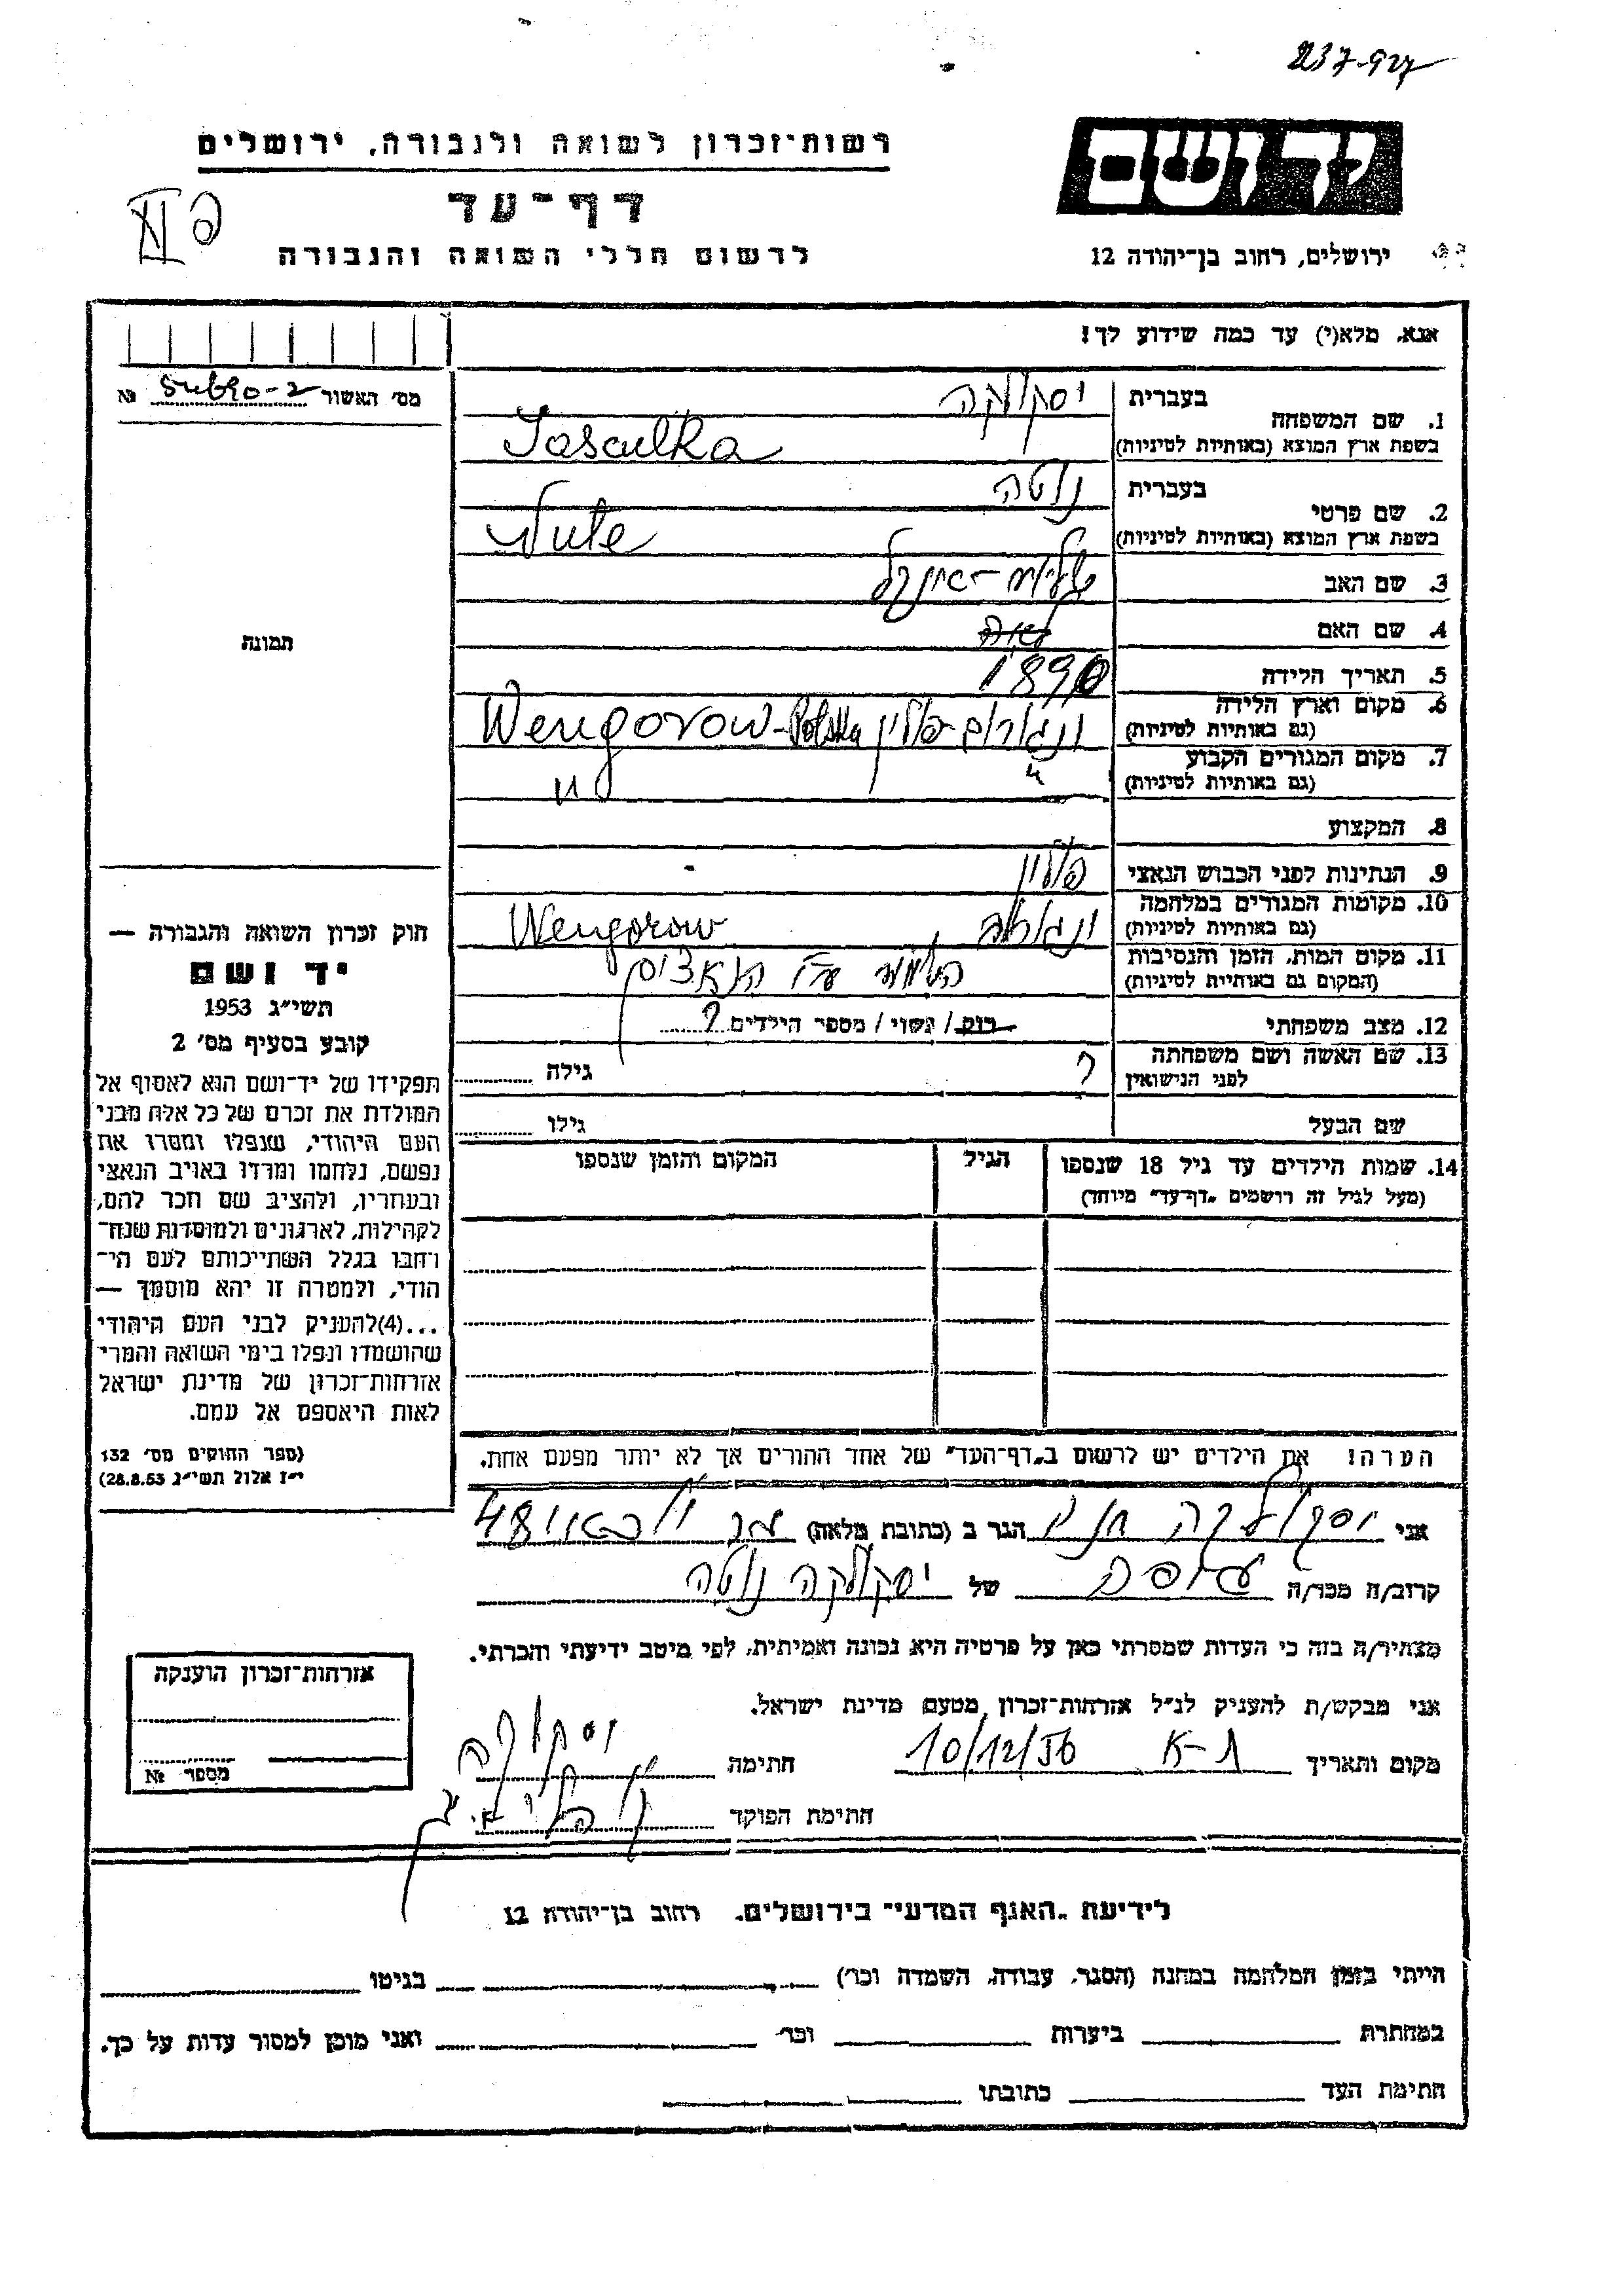 237-927
רשות־זכרון לשואה ולגבורה, ירושלים
יד ושם
דף־עד
לרשום חללי השואה והגבורה
ירושלים, רחוב בן־יהודה 12
פ II
אנא, מלא(י) עד כמה שידוע לך!
מס׳ האשור №
1. שם המשפחה בעברית יסקולקה
בשפת ארץ המוצא (באותיות לטיניות) Jasculka
2. שם פרטי בעברית נוטה
בשפת ארץ המוצא (באותיות לטיניות) Nute
3. שם האב
4. שם האם
5. תאריך הלידה 1890
6. מקום וארץ הלידה (גם באותיות לטיניות) ונגורוב-פולין Wengorow-Polska
7. מקום המגורים הקבוע (גם באותיות לטיניות) " "
8. המקצוע
9. הנתינות לפני הכבוש הנאצי פולין
10. מקומות המגורים במלחמה (גם באותיות לטיניות) ונגורוב Wengorow
11. מקום המות, הזמן והנסיבות (המקום גם באותיות לטיניות) הושמד ע"י הנאצים
12. מצב משפחתי רווק / נשוי / מספר הילדים ?
13. שם האשה ושם משפחתה לפני הנישואין ? גילה
שם הבעל גילו
14. שמות הילדים עד גיל 18 שנספו
(מעל לגיל זה רושמים „דף־עד״ מיוחד)
הגיל
המקום והזמן שנספו
הערה! את הילדים יש לרשום ב„דף־העד״ של אחד ההורים אך לא יותר מפעם אחת.
תמונה
חוק זכרון השואה והגבורה —
יד ושם
תשי״ג 1953
קובע בסעיף מס׳ 2
תפקידו של יד־ושם הוא לאסוף אל
המולדת את זכרם של כל אלה מבני
העם היהודי, שנפלו ומסרו את
נפשם, נלחמו ומרדו באויב הנאצי
ובעוזריו, ולהציב שם וזכר להם,
לקהילות, לארגונים ולמוסדות שנח־
רבו בגלל השתייכותם לעם הי־
הודי, ולמטרה זו יהא מוסמך —
...(4)להעניק לבני העם היהודי
שהושמדו ונפלו בימי השואה והמרי
אזרחות־זכרון של מדינת ישראל
לאות היאספם אל עמם.
(ספר החוקים מס׳ 132
י״ז אלול תשי״ג 28.8.53)
אני יסקולקה הגר ב (כתובת מלאה) 48
קרוב/ה מכר/ה של יסקולקה נוטה
מצהיר/ה בזה כי העדות שמסרתי כאן על פרטיה היא נכונה ואמיתית, לפי מיטב ידיעתי והכרתי.
אני מבקש/ת להעניק לנ״ל אזרחות־זכרון מטעם מדינת ישראל.
מקום ותאריך ת-א 10/12/56 חתימה יסקולקה
חתימת הפוקד
אזרחות־זכרון הוענקה
מספר №
לידיעת „האגף המדעי״ בירושלים, רחוב בן־יהודה 12
הייתי בזמן המלחמה במחנה (הסגר, עבודה, השמדה וכו׳) בגיטו
במחתרת ביערות וכו׳ ואני מוכן למסור עדות על כך.
חתימת העד כתובתו